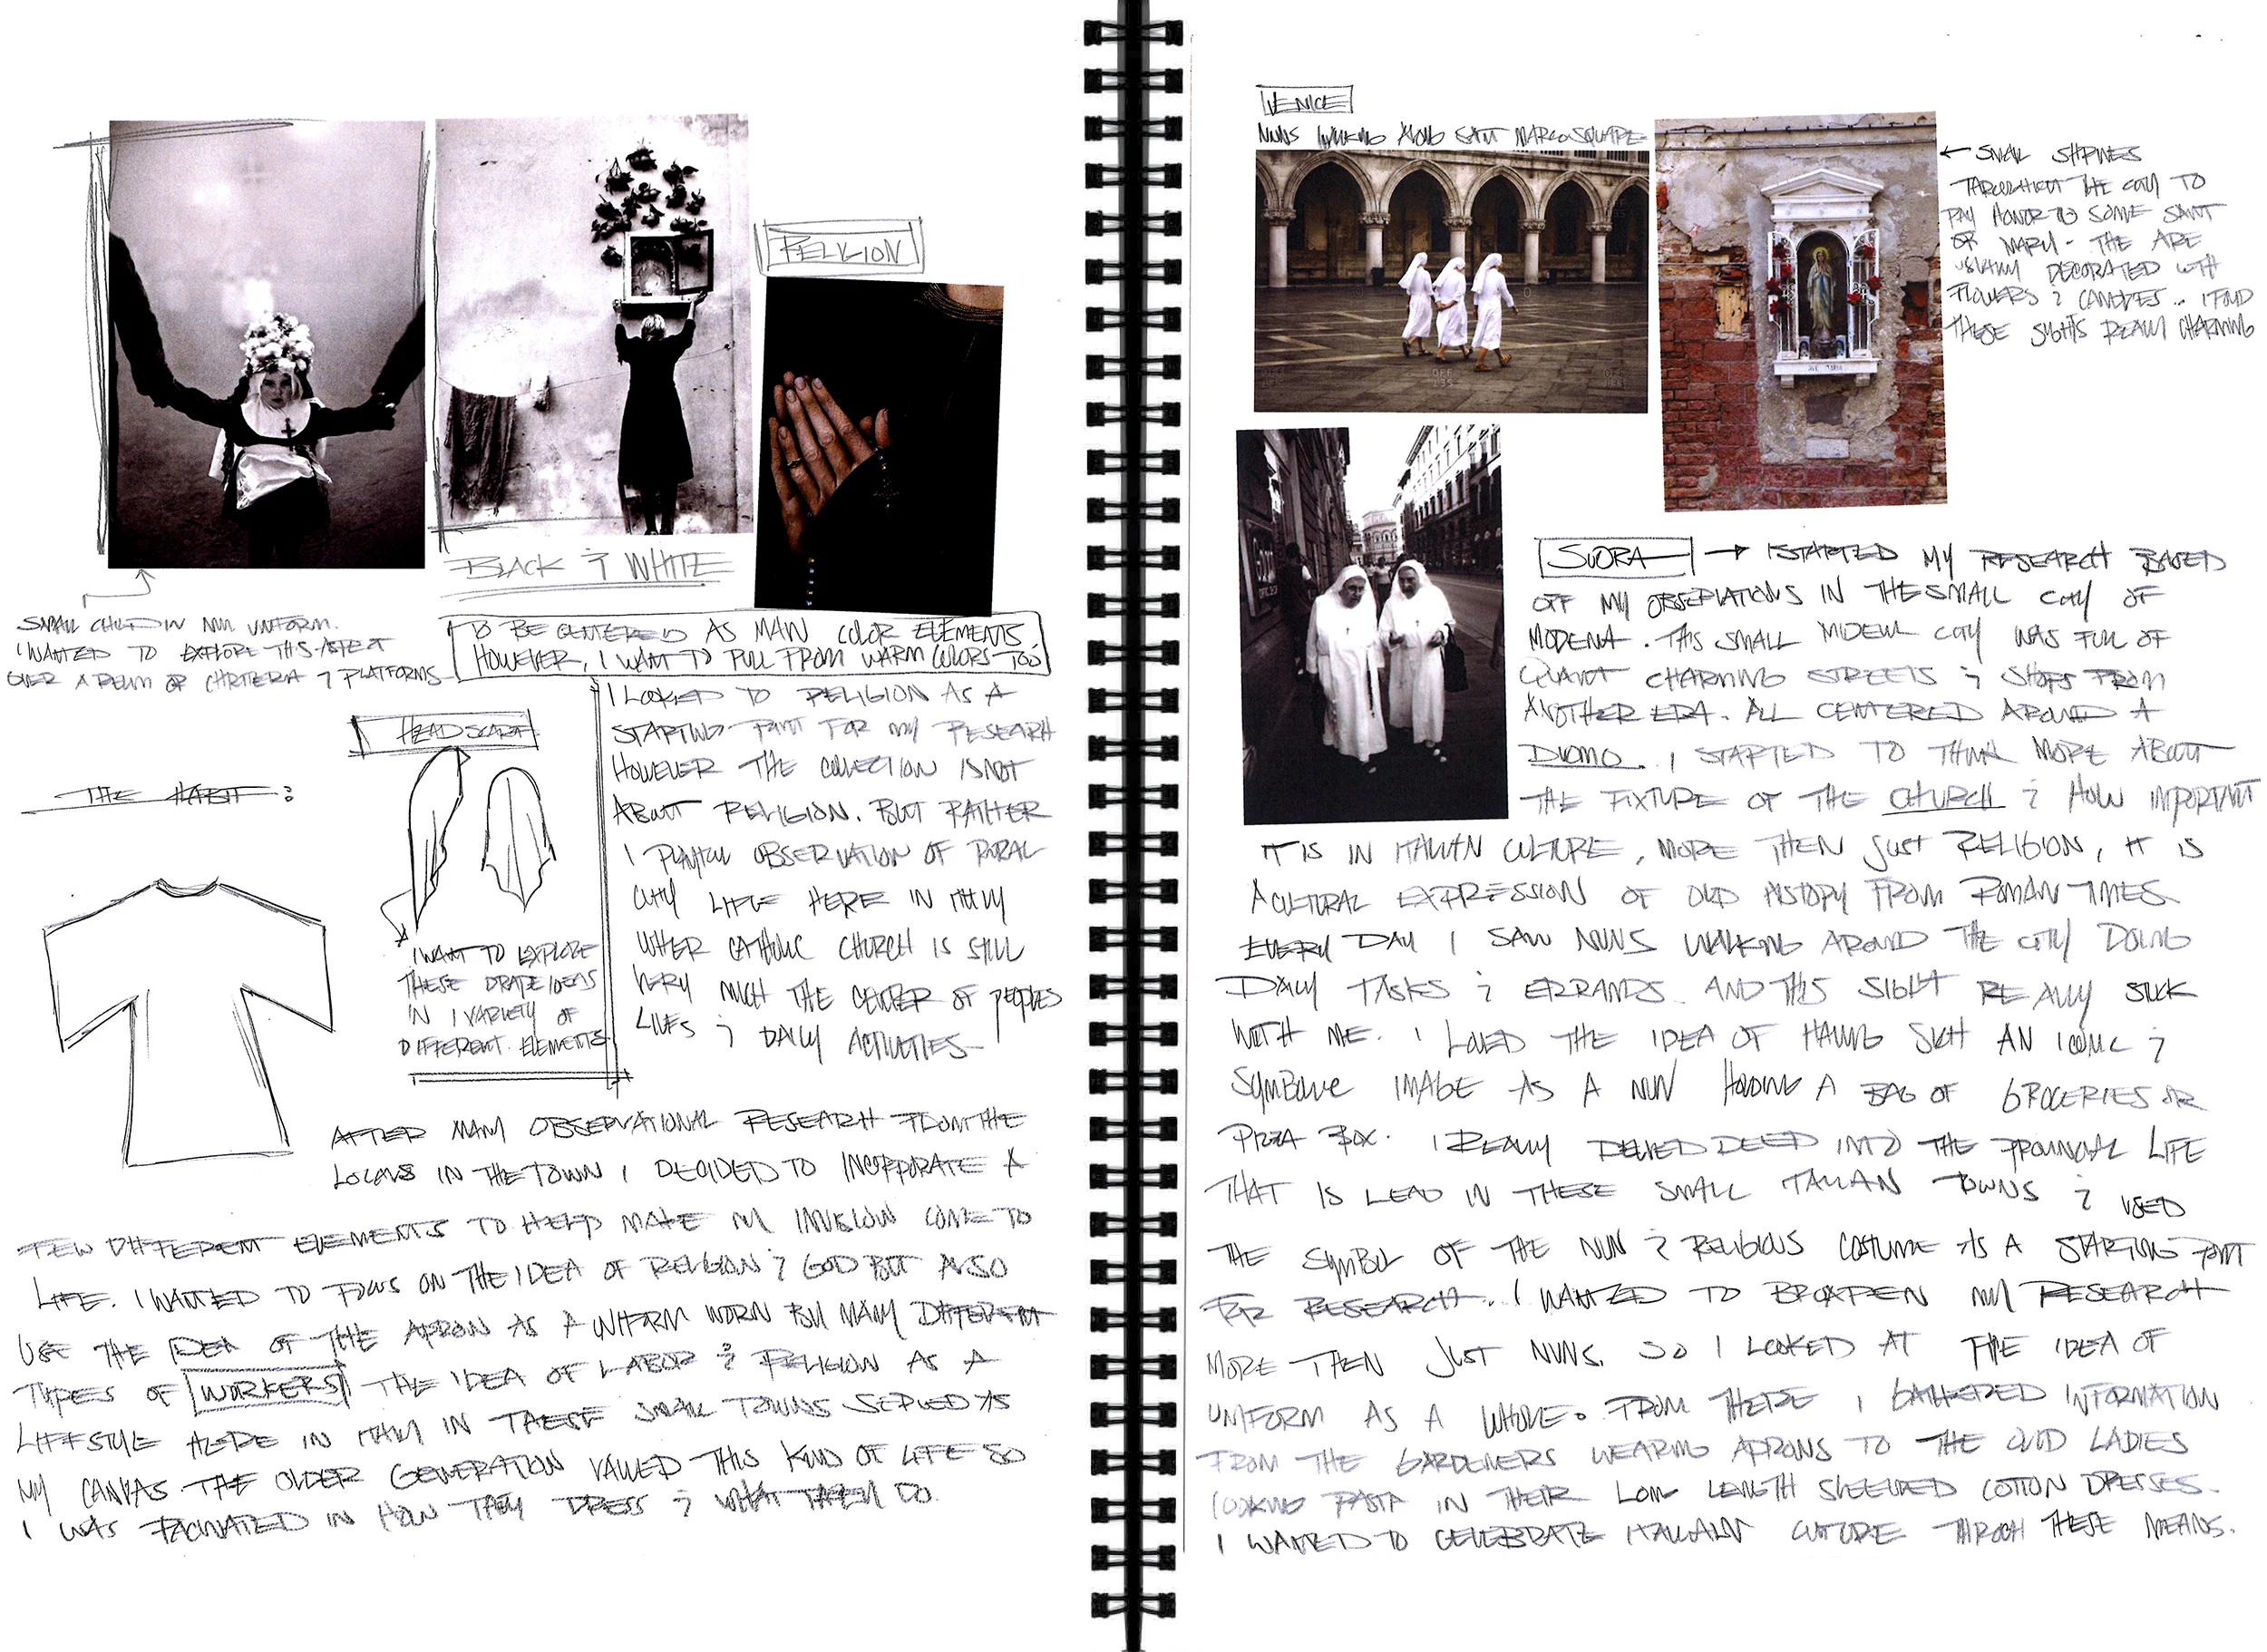 RELIGION
BLACK & WHITE
SMALL CHILD IN NUN UNIFORM.
I WANTED TO EXPLORE THIS ASPECT
OVER A REALM OF CRITERIA & PLATFORMS
TO BE CENTERED AS MAIN COLOR ELEMENTS.
HOWEVER, I WANT TO PULL FROM WARM COLORS TOO.
HEAD SCARF
THE HABIT:
I WANT TO EXPLORE
THESE DRAPE IDEAS
IN A VARIETY OF
DIFFERENT ELEMENTS
I LOOKED TO RELIGION AS A
STARTING POINT FOR MY RESEARCH
HOWEVER THE COLLECTION IS NOT
ABOUT RELIGION. BUT RATHER
A PLAYFUL OBSERVATION OF RURAL
CITY LIFE HERE IN ITALY
WHER CATHOLIC CHURCH IS STILL
VERY MUCH THE CENTER OF PEOPLES
LIVES & DAILY ACTIVITIES
AFTER MANY OBSERVATIONAL RESEARCH FROM THE
LOCALS IN THE TOWN I DECIDED TO INCORPORATE A
FEW DIFFERENT ELEMENTS TO HELP MAKE MY INVISION COME TO
LIFE. I WANTED TO FOCUS ON THE IDEA OF RELIGION & GOD BUT ALSO
USE THE IDEA OF THE APRON AS A UNIFORM WORN BY MANY DIFFERENT
TYPES OF WORKERS THE IDEA OF LABOR & RELIGION AS A
LIFESTYLE HERE IN ITALY IN THESE SMALL TOWNS SERVED AS
MY CANVAS. THE OLDER GENERATION VALUED THIS KIND OF LIFE SO
I WAS FACINATED IN HOW THEY DRESS & WHAT THEY DO.
VENICE
NUNS WALKING ALONG SAINT MARCO SQUARE
← SMALL SHRINES
THROUGHOUT THE CITY TO
PAY HONOR TO SOME SAINT
OR MARY - THE ARE
USUALLY DECORATED WITH
FLOWERS & CANDLES.. I FIND
THESE SIGHTS REALLY CHARMING
AVE MARIA
SUORA → I STARTED MY RESEARCH BASED
OFF MY OBSERVATIONS IN THE SMALL CITY OF
MODENA. THIS SMALL CITY WAS FULL OF
QUAINT CHARMING STREETS & SHOPS FROM
ANOTHER ERA. ALL CENTERED AROUND A
DUOMO. I STARTED TO THINK MORE ABOUT
THE FIXTURE OF THE CHURCH & HOW IMPORTANT
IT IS IN ITALIAN CULTURE, MORE THEN JUST RELIGION, IT IS
A CULTURAL EXPRESSION OF OLD HISTORY FROM ROMAN TIMES
EVERY DAY I SAW NUNS WALKING AROUND THE CITY DOING
DAILY TASKS & ERRANDS. AND THIS SIGHT REALLY STUCK
WITH ME. I LOVED THE IDEA OF HAVING SUCH AN ICONIC &
SYMBOLIC IMAGE AS A NUN HOLDING A BAG OF GROCERIES OR
PIZZA BOX. I REALLY DELVED DEEP INTO THE PROVINCIAL LIFE
THAT IS LEAD IN THESE SMALL ITALIAN TOWNS & USED
THE SYMBOL OF THE NUN & RELIGIOUS COSTUME AS A STARTING POINT
FOR RESEARCH. I WANTED TO BROADEN MY RESEARCH
MORE THEN JUST NUNS. SO I LOOKED AT THE IDEA OF
UNIFORM AS A WHOLE. FROM THERE I GATHERED INFORMATION
FROM THE GARDENERS WEARING APRONS TO THE OLD LADIES
COOKING PASTA IN THEIR LONG LENGTH SLEEVED COTTON DRESSES.
I WANTED TO CELEBRATE ITALIAN CULTURE THROGH THESE MEANS.